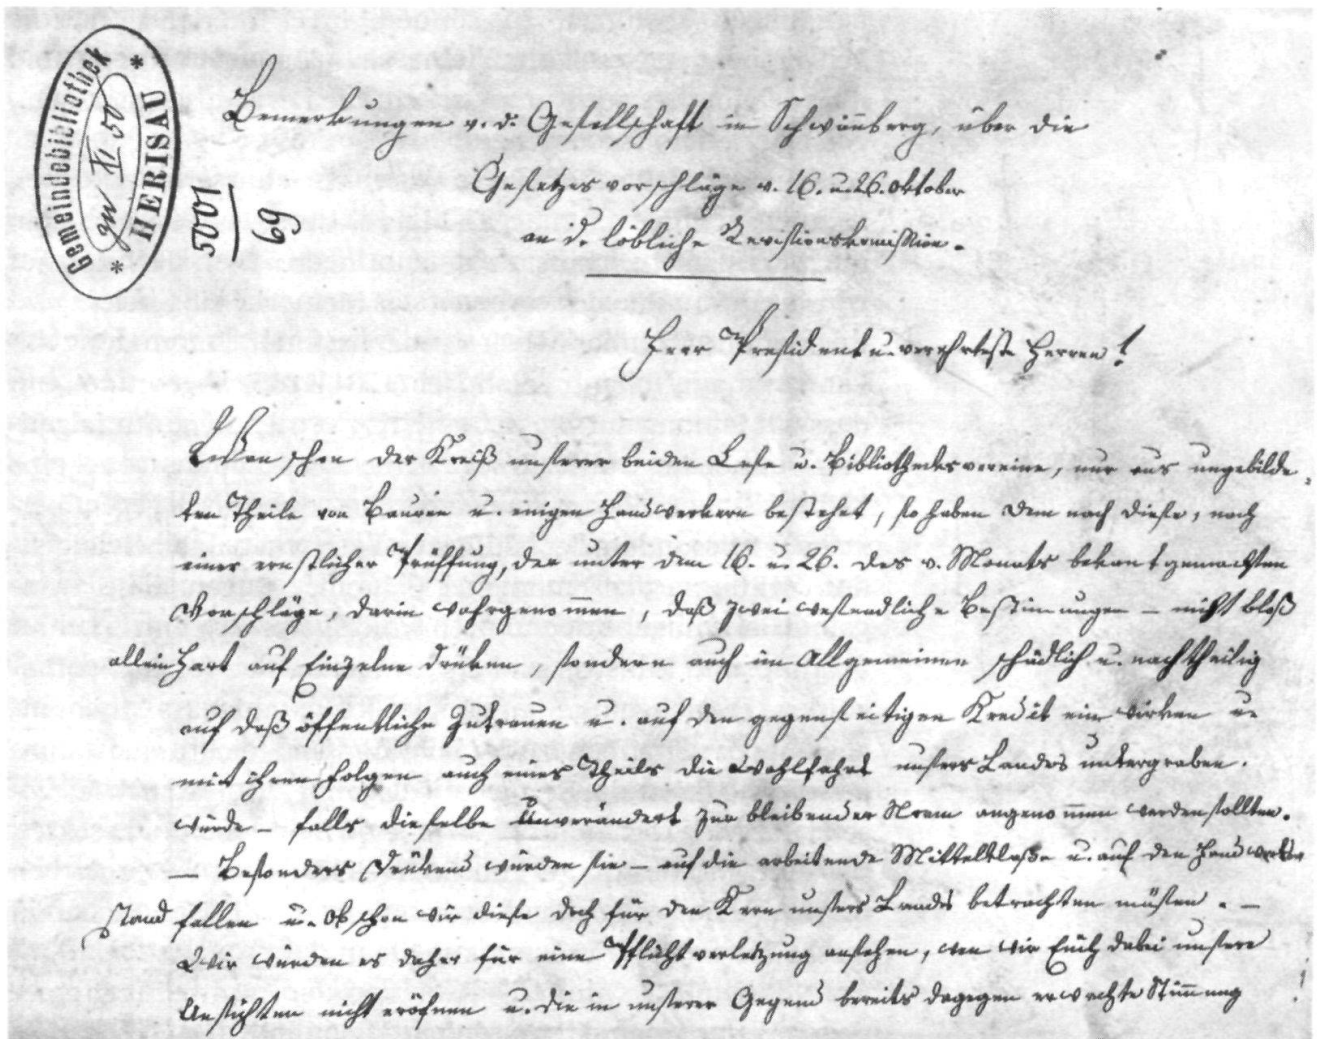 Gemeindebibliothek
HERISAU
5001
69
Bemerkungen v. d. Gesellschaft in Schwänberg, über die
Gesetzes vorschläge v. 16. u. 26. Oktober
an d. löbliche Revisionskomission.
Herr President u. verehrteste Herren!
schon der Kreiß unserer beiden Lese u. Bibliotheksvereine, nur aus ungebilde-
ten Theile von Bauren u. einigen Handwerkern bestehet, so haben dem nach diese, nach
einer ernstlicher Prüffung, der unter dem 16. u. 26. des v. Monats bekantgemachten
Vorschläge, darin wahrgenomen, daß zwei wesendliche Bestimungen – nicht bloß
allein hart auf Einzelne drüken sondern auch im Allgemeinen schädlich u. nachtheilig
auf daß öffentliche Zutrauen u. auf den gegenseitigen Kredit ein wirken u.
mit ihren folgen auch eines Theils die Wohlfahrt unsers Landes untergraben.
würde – falls dieselbe Unverändert zur bleibender Norm angenommen werden sollten.
– Besonders drükend würden sie – auf die arbeitende Mittelklaße u. auf den Handwerks
stand fallen u. Ob schon wir diese doch für den Kern unsers Landes betrachten müsten. –
Wir würden es daher für eine Pflichtverletzung ansehen, wen wir Euch dabei unsere
Ansichten nicht eröfnen u. die in unserer Gegend bereits dagegen erwachte Stimmung